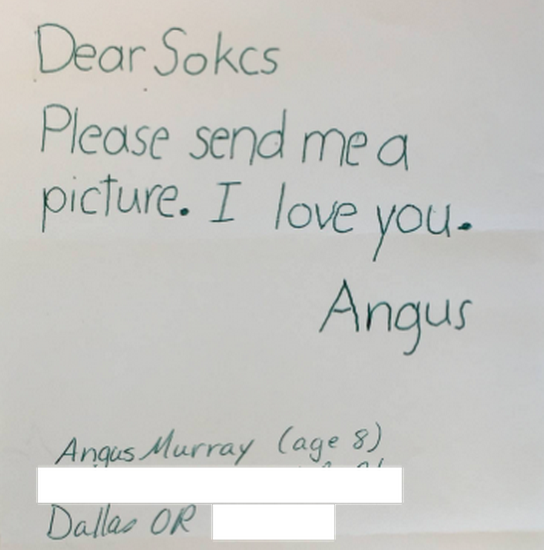 Dear Sokcs
Please send me a
picture. I love you.
Angus
Angus Murray (age 8)
Dallas OR